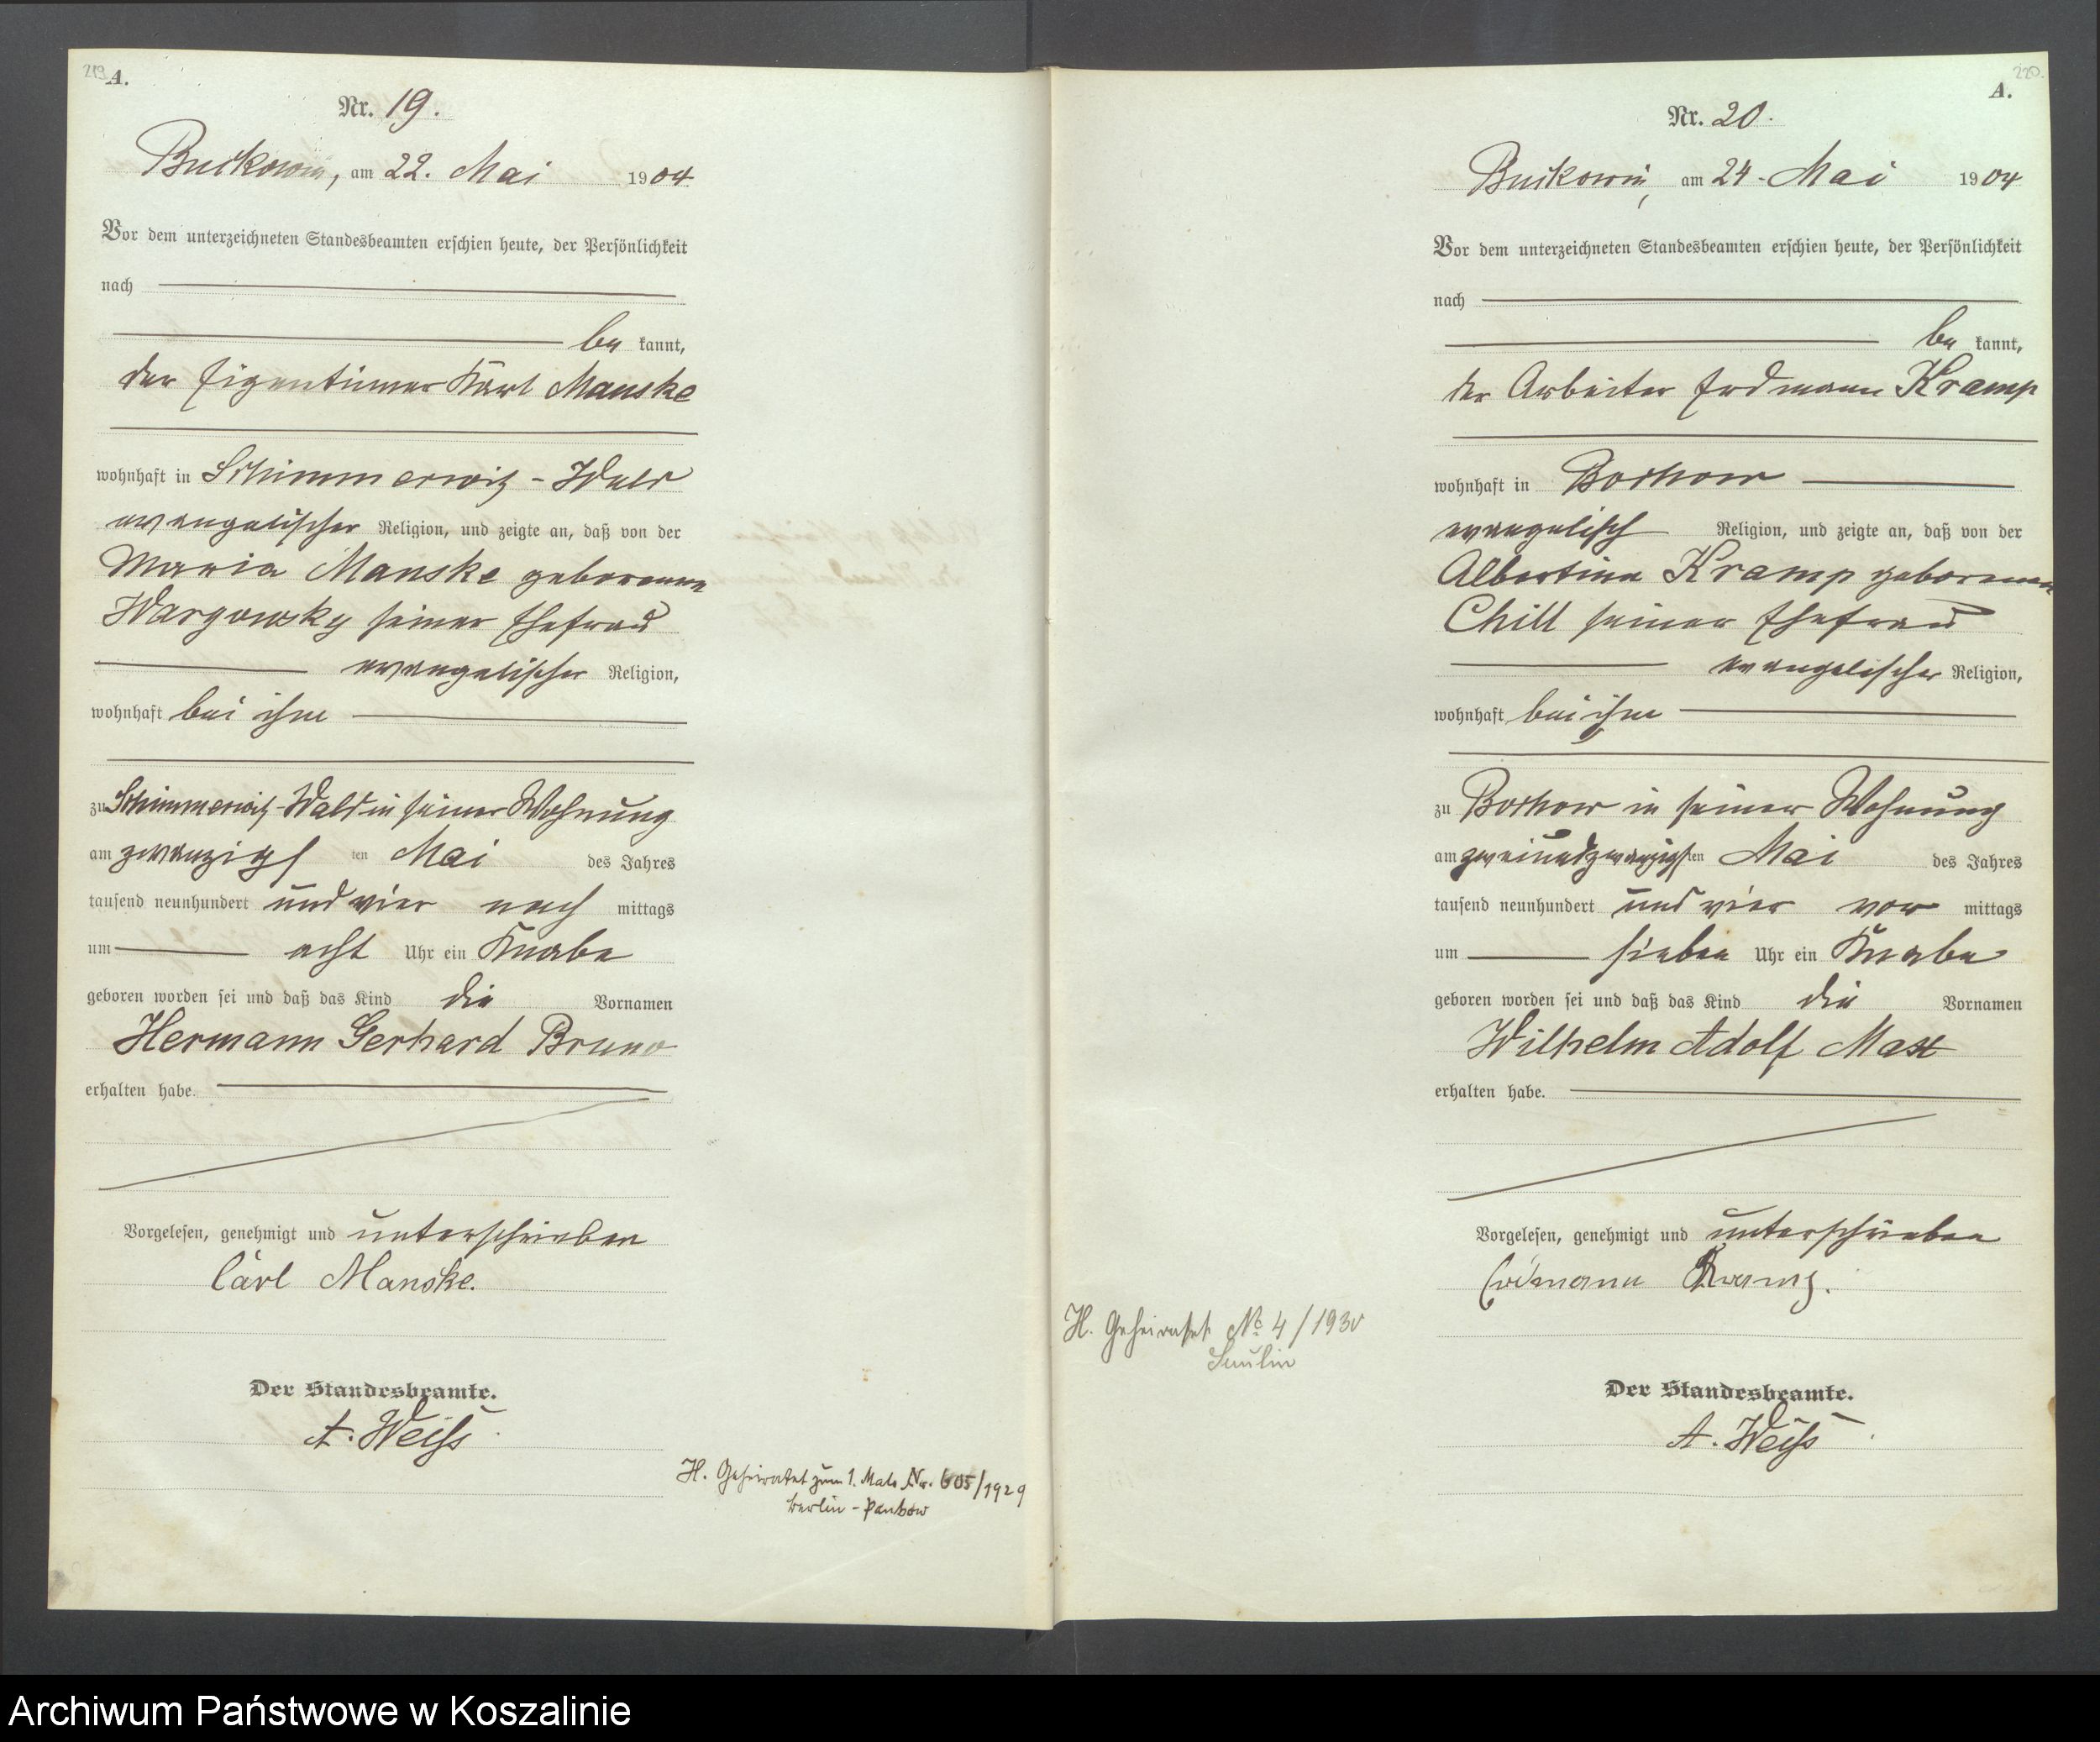 219. A.
Nr. 19.
Buckowin, am 22. Mai 1904
Vor dem unterzeichneten Standesbeamten erschien heute, der Persönlichkeit
nach
be kannt,
der Eigentümer Karl Manske
wohnhaft in Schimmerwitz-Wald
evangelischer Religion, und zeigte an, daß von der
Maria Manske geborenen
Wargowsky seiner Ehefrau
evangelischer Religion,
wohnhaft bei ihm
zu Schimmerwitz-Wald in seiner Wohnung
am zwanzigsten Mai des Jahres
tausend neunhundert und vier nach mittags
um acht Uhr ein Knabe
geboren worden sei und daß das Kind die Vornamen
Hermann Gerhard Bruno
erhalten habe.
Vorgelesen, genehmigt und unterschrieben
Carl Manske.
Der Standesbeamte.
A. Weiß
H. Geheiratet zum 1. Male Nr. 605/1929
Berlin-Pankow
220.
A.
Nr. 20.
Buckowin, am 24. Mai 1904
Vor dem unterzeichneten Standesbeamten erschien heute, der Persönlichkeit
nach
be kannt,
der Arbeiter Erdmann Kramp
wohnhaft in Bochow
evangelisch Religion, und zeigte an, daß von der
Albertine Kramp geborenen
Chill seiner Ehefrau
evangelischer Religion,
wohnhaft bei ihm
zu Bochow in seiner Wohnung
am zweiundzwanzigsten Mai des Jahres
tausend neunhundert und vier vor mittags
um sieben Uhr ein Knabe
geboren worden sei und daß das Kind die Vornamen
Wilhelm Adolf Max
erhalten habe.
Vorgelesen, genehmigt und unterschrieben
Erdmann Kramp.
H. Geheiratet No 4/1930
Saulin
Der Standesbeamte.
A. Weiß
Archiwum Państwowe w Koszalinie